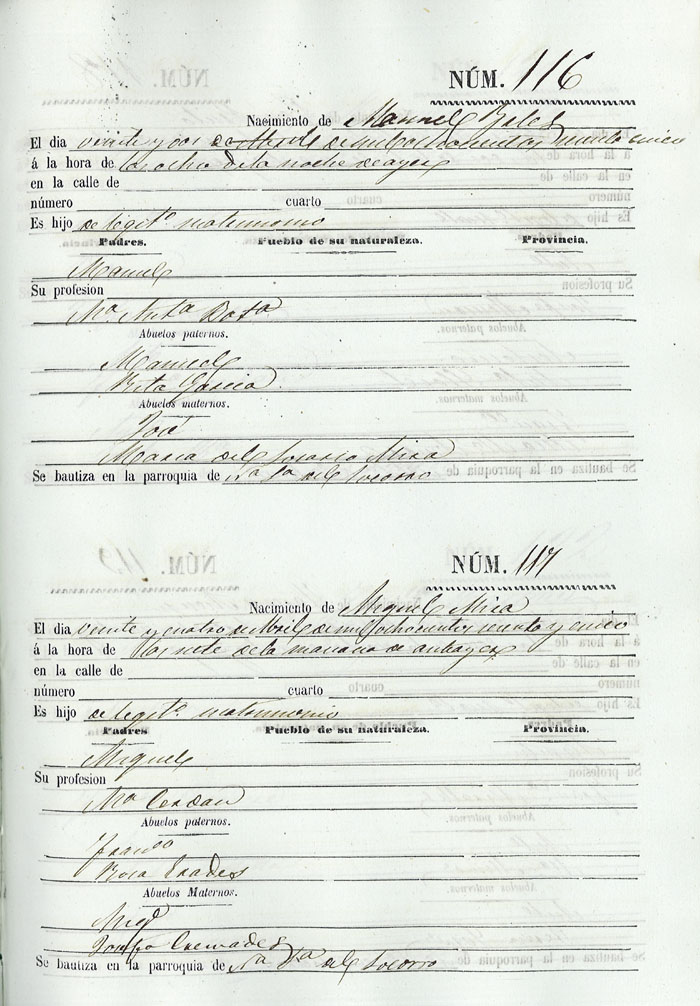 NÚM. 116
Nacimiento de Manuel
El dia veinte y dos de Abril de mil ochocientos sesenta y cinco
á la hora de las ocho de la noche de ayer
en la calle de
número cuarto
Es hijo de legit.º matrimonio
Padres. Pueblo de su naturaleza. Provincia.
Manuel
Su profesion
M.ª
Abuelos paternos.
Manuel
Rita Garcia
Abuelos maternos.
José
Maria del Socorro Mira
Se bautiza en la parroquia de N.ª S.ª del Socorro
NÚM. 117
Nacimiento de Miguel Mira
El dia veinte y cuatro de Abril de mil ochocientos sesenta y cinco
á la hora de las siete de la mañana de antiayer
en la calle de
número cuarto
Es hijo de legit.º matrimonio
Padres Pueblo de su naturaleza. Provincia.
Miguel
Su profesion
M.ª Cerdan
Abuelos paternos.
Fran.co
Rosa Prades
Abuelos Maternos.
Mig.l
Josefa Cremades
Se bautiza en la parroquia de N.ª S.ª del Socorro